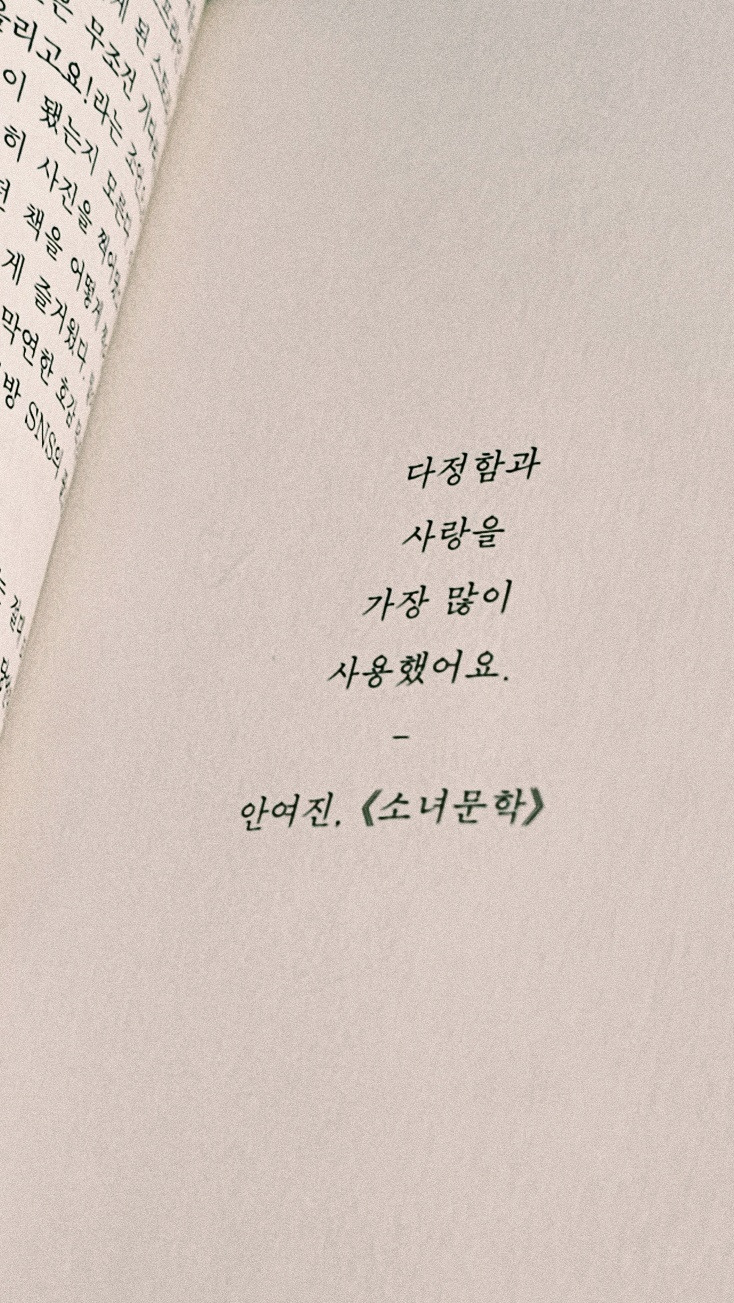 무조건
올리고요!라는
이 됐는지 모른다
히 사진을
책을 어떻게
게 즐거웠다.
막연한 호감
방 SNS의
다정함과
사랑을
가장 많이
사용했어요.
–
안여진, 《소녀문학》